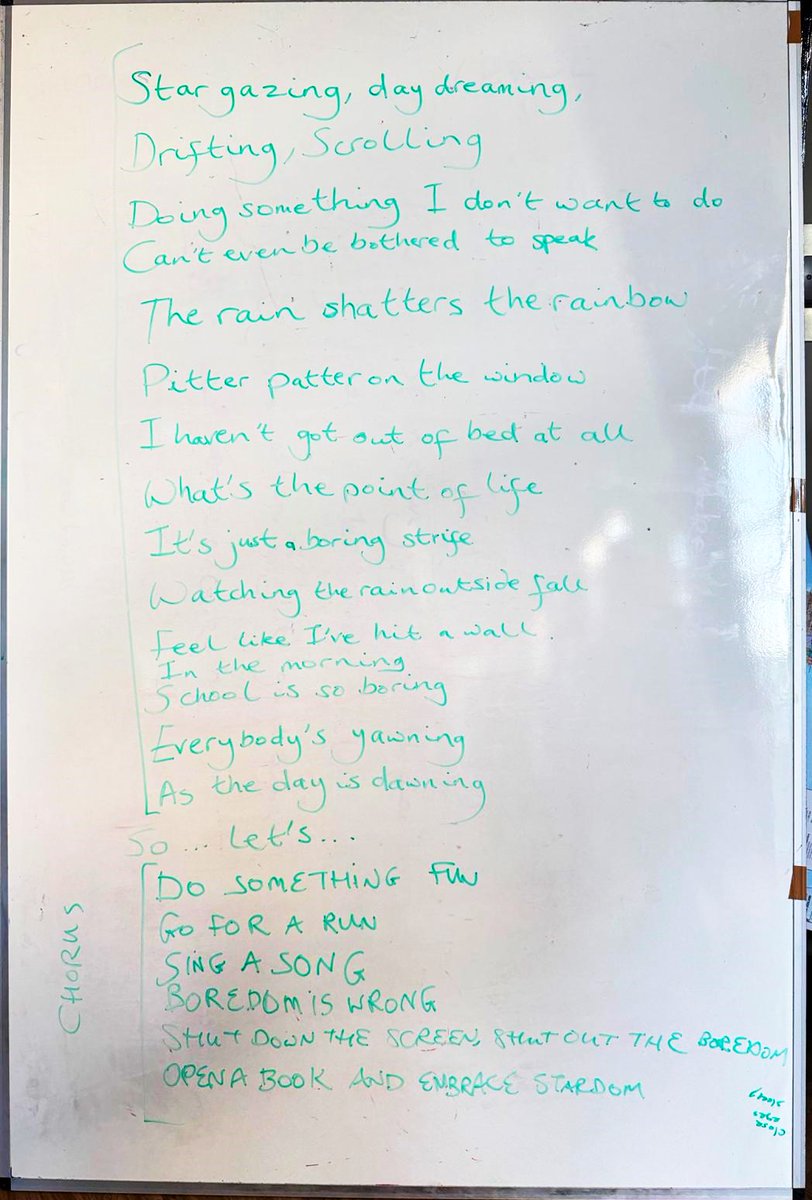 Star gazing, day dreaming,
Drifting, Scrolling
Doing something I don't want to do
Can't even be bothered to speak
The rain shatters the rainbow
Pitter patter on the window
I haven't got out of bed at all
What's the point of life
It's just a boring strife
Watching the rain outside fall
Feel like I've hit a wall.
In the morning
School is so boring
Everybody's yawning
As the day is dawning
So... Let's...
CHORUS
DO SOMETHING FUN
GO FOR A RUN
SING A SONG
BOREDOM IS WRONG
SHUT DOWN THE SCREEN, SHUT OUT THE BOREDOM
OPEN A BOOK AND EMBRACE STARDOM
close
eyes